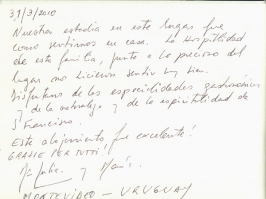 31/3/2010
Nuestra estadía en este lugar fue
como sentirnos en casa. La hospitalidad
de esta familia, junto a lo precioso del
lugar nos hicieron sentir muy bien.
Disfrutamos de las especialidades gastronómicas
y de la naturaleza y de la espiritualidad de
S Francisco.
Este alojamiento fue excelente!
GRAZIE PER TUTTI!
y
MONTEVIDEO - URUGUAY